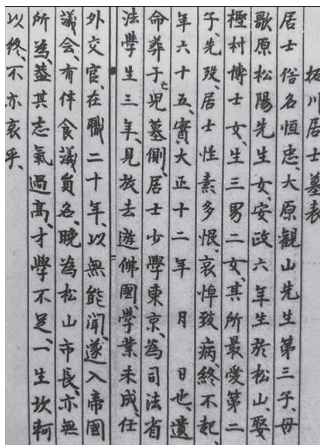 拓川居士墓表
居士俗名恒忠大原観山先生第三子母
歌原松陽先生女安政六年生於松山娶
樫村博士女生三男二女其所最愛第二
子先歿居士性素多恨哀悼致病終不起
年六十五實大正十二年 月 日也遺
命葬于亡児墓側居士少學東京為司法省
法學生三年見放去遊佛國學業未成任
外交官在職二十年以無能聞遂入帝國
議会有伴食議員名晩為松山市長亦無
所為蓋其志氣過高才學不足一生坎軻
以終不亦哀乎